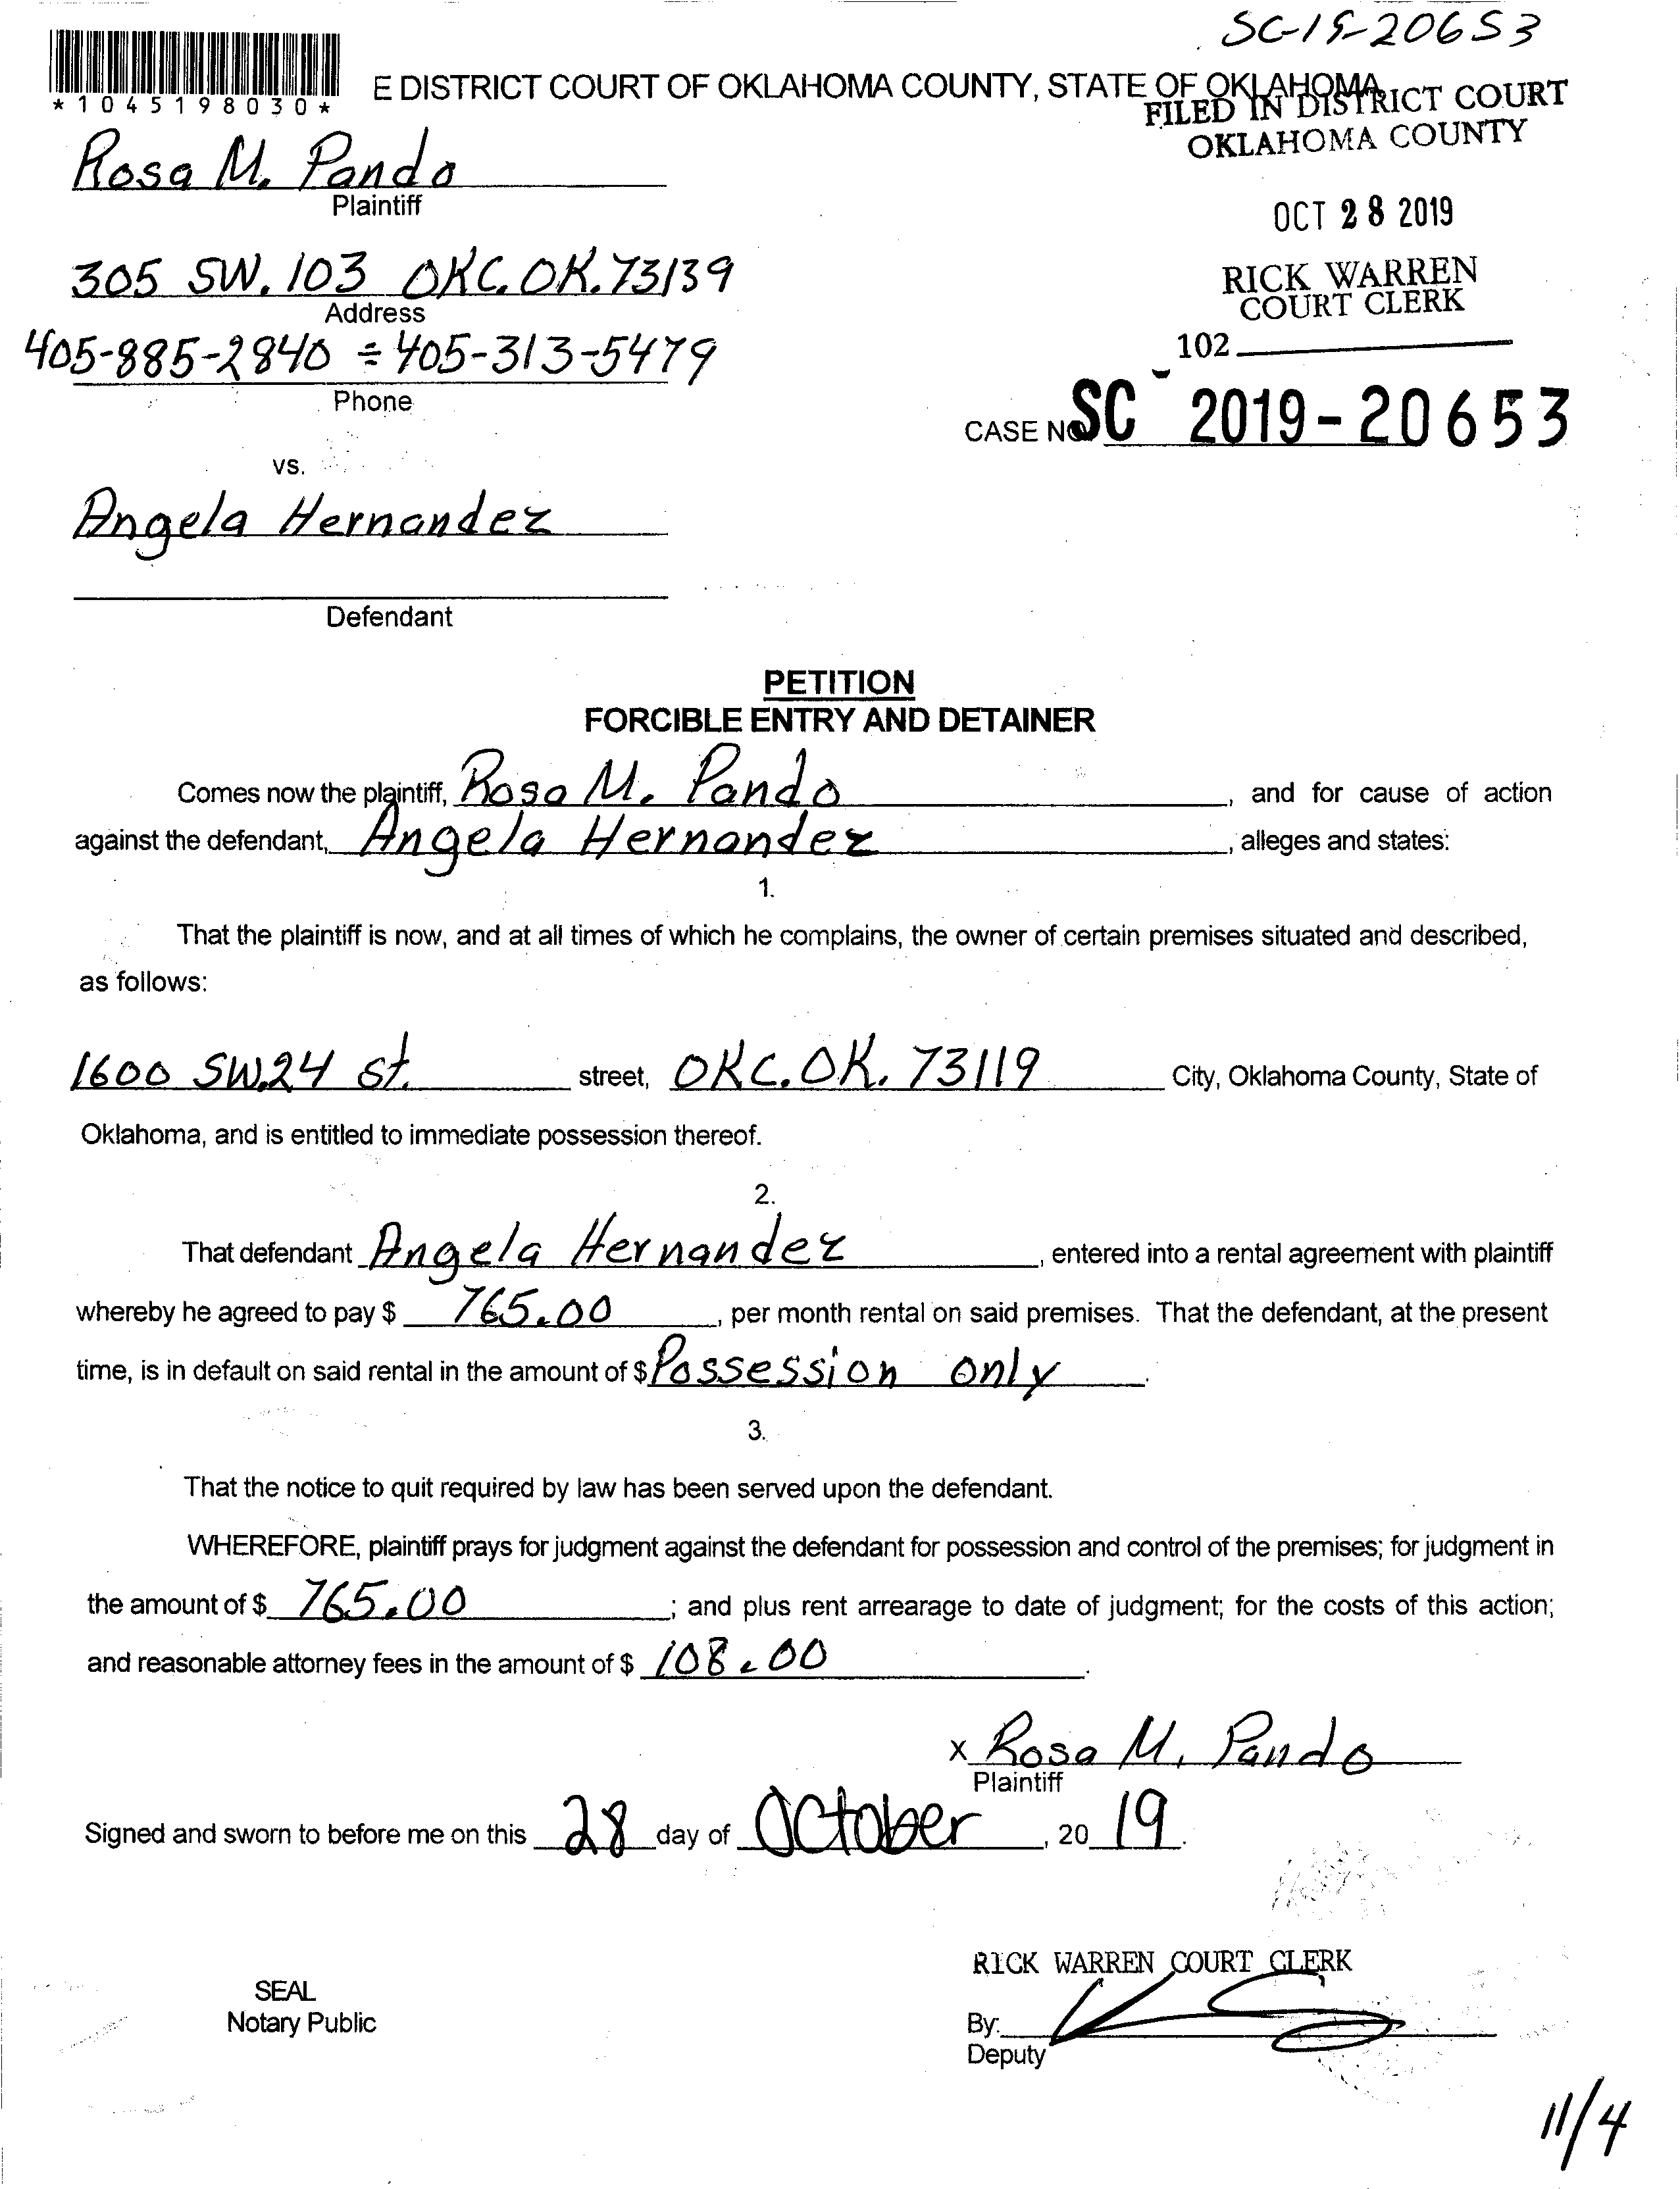 SC-19-20653
*1045198030*
E DISTRICT COURT OF OKLAHOMA COUNTY, STATE OF OKLAHOMA
FILED IN DISTRICT COURT
OKLAHOMA COUNTY
Rosa M. Pando
Plaintiff
OCT 28 2019
305 SW. 103 OKC. OK. 73139
Address
RICK WARREN
COURT CLERK
405-885-2840 ÷ 405-313-5479
Phone
102
CASE NO. SC 2019-20653
vs.
Angela Hernandez
Defendant
PETITION
FORCIBLE ENTRY AND DETAINER
Comes now the plaintiff, Rosa M. Pando, and for cause of action
against the defendant, Angela Hernandez, alleges and states:
1.
That the plaintiff is now, and at all times of which he complains, the owner of certain premises situated and described,
as follows:
1600 SW.24 st. street, OKC. OK. 73119 City, Oklahoma County, State of
Oklahoma, and is entitled to immediate possession thereof.
2.
That defendant Angela Hernandez, entered into a rental agreement with plaintiff
whereby he agreed to pay $ 765.00, per month rental on said premises. That the defendant, at the present
time, is in default on said rental in the amount of $ Possession only.
3.
That the notice to quit required by law has been served upon the defendant.
WHEREFORE, plaintiff prays for judgment against the defendant for possession and control of the premises; for judgment in
the amount of $ 765.00; and plus rent arrearage to date of judgment; for the costs of this action;
and reasonable attorney fees in the amount of $ 108.00.
X Rosa M. Pando
Plaintiff
Signed and sworn to before me on this 28 day of October, 20 19.
RICK WARREN COURT CLERK
SEAL
Notary Public
By:
Deputy
11/4